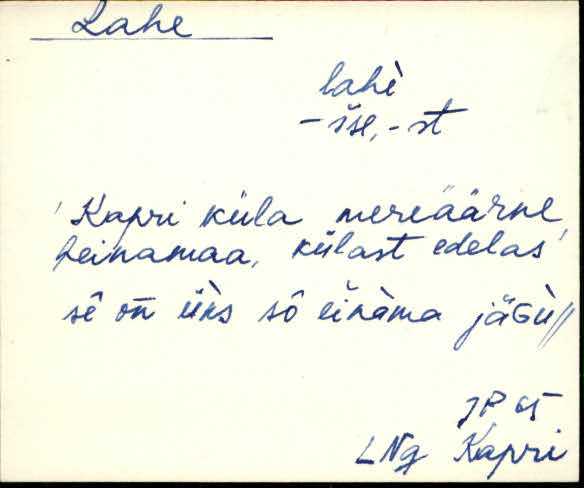 Lahe
lahè
-šse, -st
'Kapri küla mereäärne
heinamaa, külast edelas'
sê on̄ üks sô einàma jäGù//
JP 65
LNg Kapri